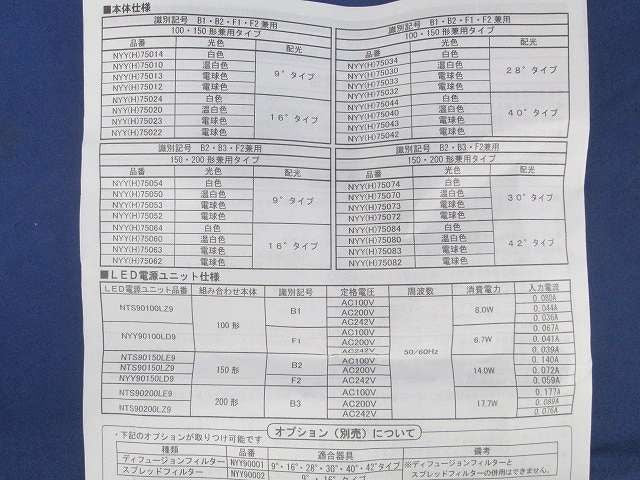 ■本体仕様
識別記号 B1・B2・F1・F2兼用
100・150形兼用タイプ
品番 光色 配光
NYY(H)75014 白色
NYY(H)75010 温白色
NYY(H)75013 電球色
NYY(H)75012 電球色
9°タイプ
NYY(H)75024 白色
NYY(H)75020 温白色
NYY(H)75023 電球色
NYY(H)75022 電球色
16°タイプ
識別記号 B1・B2・F1・F2兼用
100・150形兼用タイプ
品番 光色 配光
NYY(H)75034 白色
NYY(H)75030 温白色
NYY(H)75033 電球色
NYY(H)75032 電球色
28°タイプ
NYY(H)75044 白色
NYY(H)75040 温白色
NYY(H)75043 電球色
NYY(H)75042 電球色
40°タイプ
識別記号 B2・B3・F2兼用
150・200形兼用タイプ
品番 光色 配光
NYY(H)75054 白色
NYY(H)75050 温白色
NYY(H)75053 電球色
NYY(H)75052 電球色
9°タイプ
NYY(H)75064 白色
NYY(H)75060 温白色
NYY(H)75063 電球色
NYY(H)75062 電球色
16°タイプ
識別記号 B2・B3・F2兼用
150・200形兼用タイプ
品番 光色 配光
NYY(H)75074 白色
NYY(H)75070 温白色
NYY(H)75073 電球色
NYY(H)75072 電球色
30°タイプ
NYY(H)75084 白色
NYY(H)75080 温白色
NYY(H)75083 電球色
NYY(H)75082 電球色
42°タイプ
■LED電源ユニット仕様
LED電源ユニット品番 組み合わせ本体 識別記号 定格電圧 周波数 消費電力 入力電流
NTS90100LZ9 100形 B1 AC100V 50/60Hz 8.0W 0.080A
AC200V 0.044A
AC242V 0.036A
NYY90100LD9 F1 AC100V 6.7W 0.067A
AC200V 0.041A
AC242V 0.039A
NTS90150LE9 150形 B2 AC100V 14.0W 0.140A
NTS90150LZ9 AC200V 0.072A
NYY90150LD9 F2 AC242V 0.059A
NTS90200LE9 200形 B3 AC100V 17.7W 0.177A
NTS90200LZ9 AC200V 0.089A
AC242V 0.076A
オプション(別売)について
・下記のオプションが取りつけ可能です
種類 品番 適合器具 備考
ディフュージョンフィルター NYY90001 9°・16°・28°・30°・40°・42°タイプ ※ディフュージョンフィルターと
スプレッドフィルター NYY90002 9°・16°タイプ スプレッドフィルターの併用はできません。